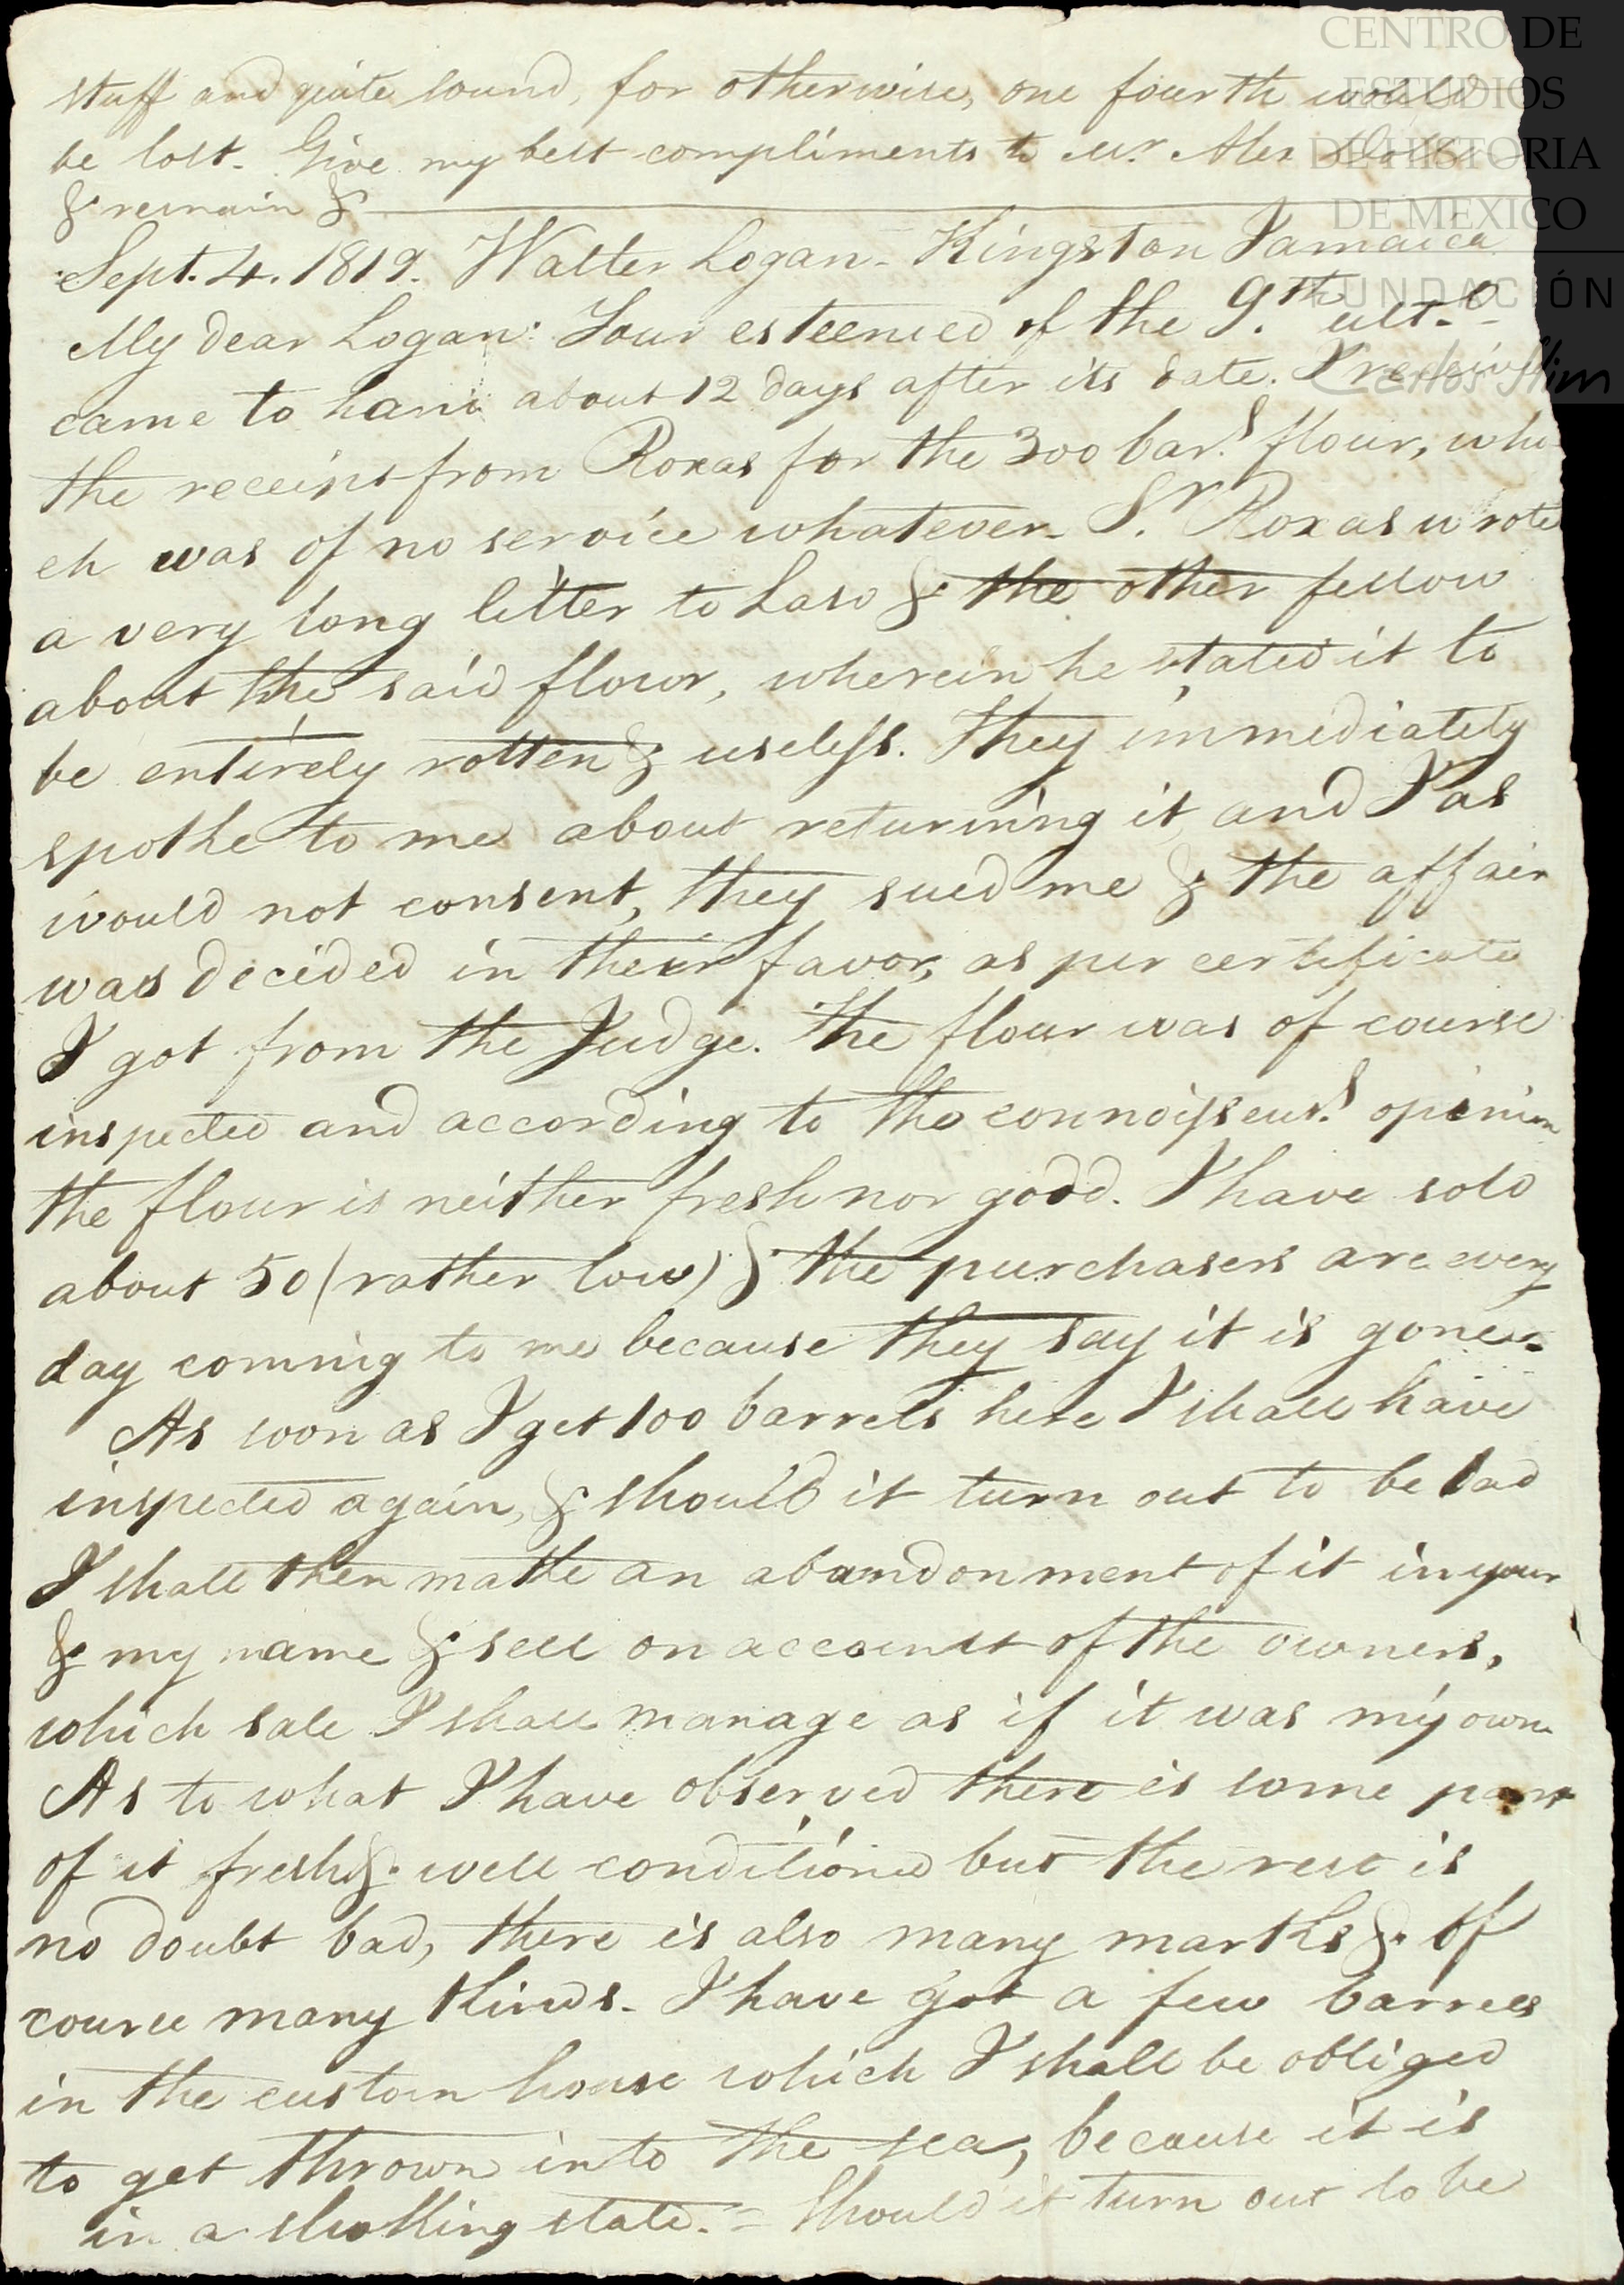 stuff and quite sound, for otherwise, one fourth would
be lost. Give my best compliments to Mr. Alex
& remain &
Sept. 4. 1819. Walter Logan - Kingston Jamaica
My dear Logan: Your esteemed of the 9th. ulto.
came to hand about 12 days after its date. I received
the receipt from Roxas for the 300 bars. flour, whi-
ch was of no service whatever. Sr. Roxas wrote
a very long letter to Laso & the other fellow
about the said flour, wherein he stated it to
be entirely rotten & useless. They immediately
spothe to me about returning it, and I as
would not consent, they sued me & the affair
was decided in their favor, as per certificate
I got from the Judge. The flour was of course
inspected and according to the connoisseurs. opinion
the flour is neither fresh nor good. I have sold
about 50 (rather low) & the purchasers are every
day coming to me because they say it is gone.
As soon as I get 100 barrels here I shall have
inspected again, & should it turn out to be bad
I shall then mathe an abandonment of it in your
& my name & sell on account of the owners,
which sale I shall manage as if it was my own
As to what I have observed there is some part
of it fresh & well conditioned but the rest is
no doubt bad, there is also many marths & of
course many thinds. I have got a few barrels
in the custom house which I shall be obliged
to get thrown into the sea, because it is
in a shothing state. = Should it turn out to be
CENTRO DE
ESTUDIOS
DE HISTORIA
DE MEXICO
FUNDACIÓN
Carlos Slim